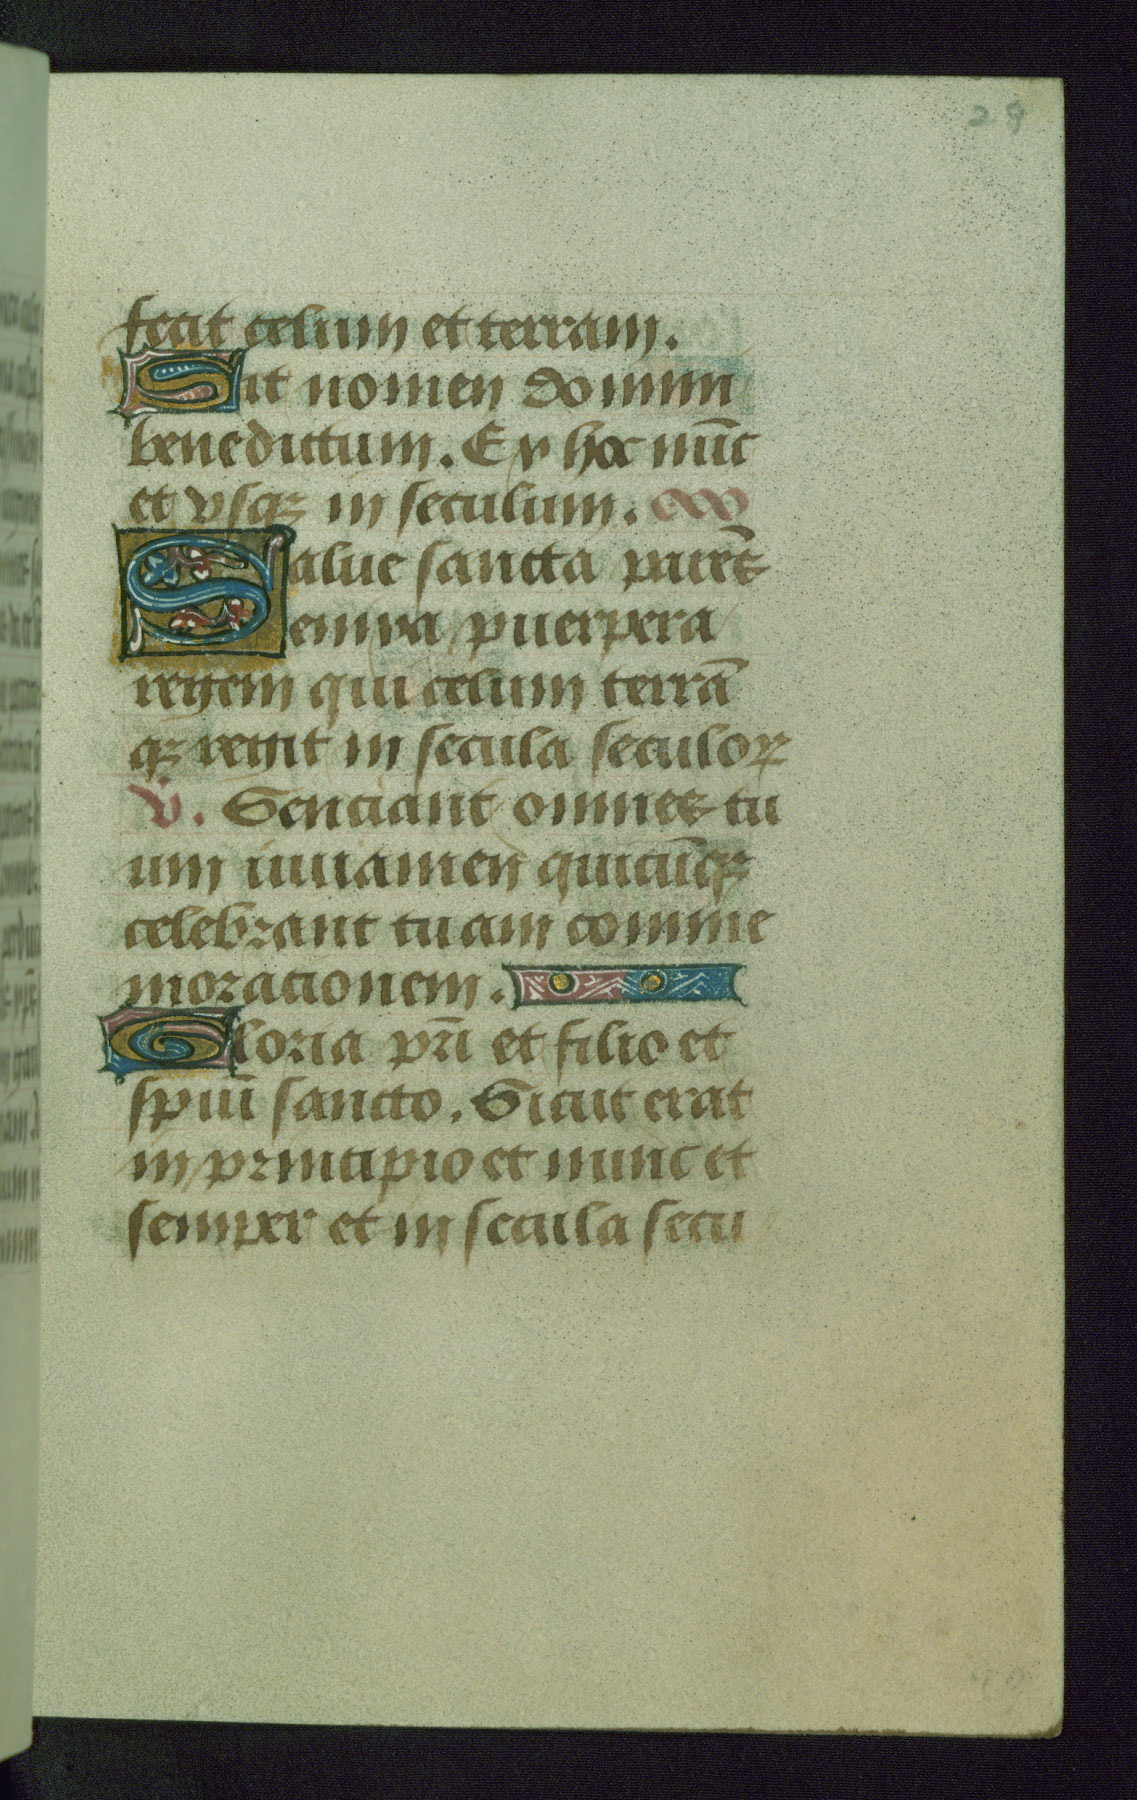 29
fecit celum et terram.
Sit nomen domini
benedictum. Ex hoc nũc
et vsqꝫ in seculum.
Salue sancta parẽs
enixa puerpera
regem qui celum terrã
qꝫ regit in secula seculoꝝ
V̇. Senciant omnes tu
um iuuamen quicũqꝫ
celebrant tuam comme
moracionem.
Gloria pr̃i et filio et
spiũi sancto. Sicut erat
in principio et nunc et
semper et in secula secu